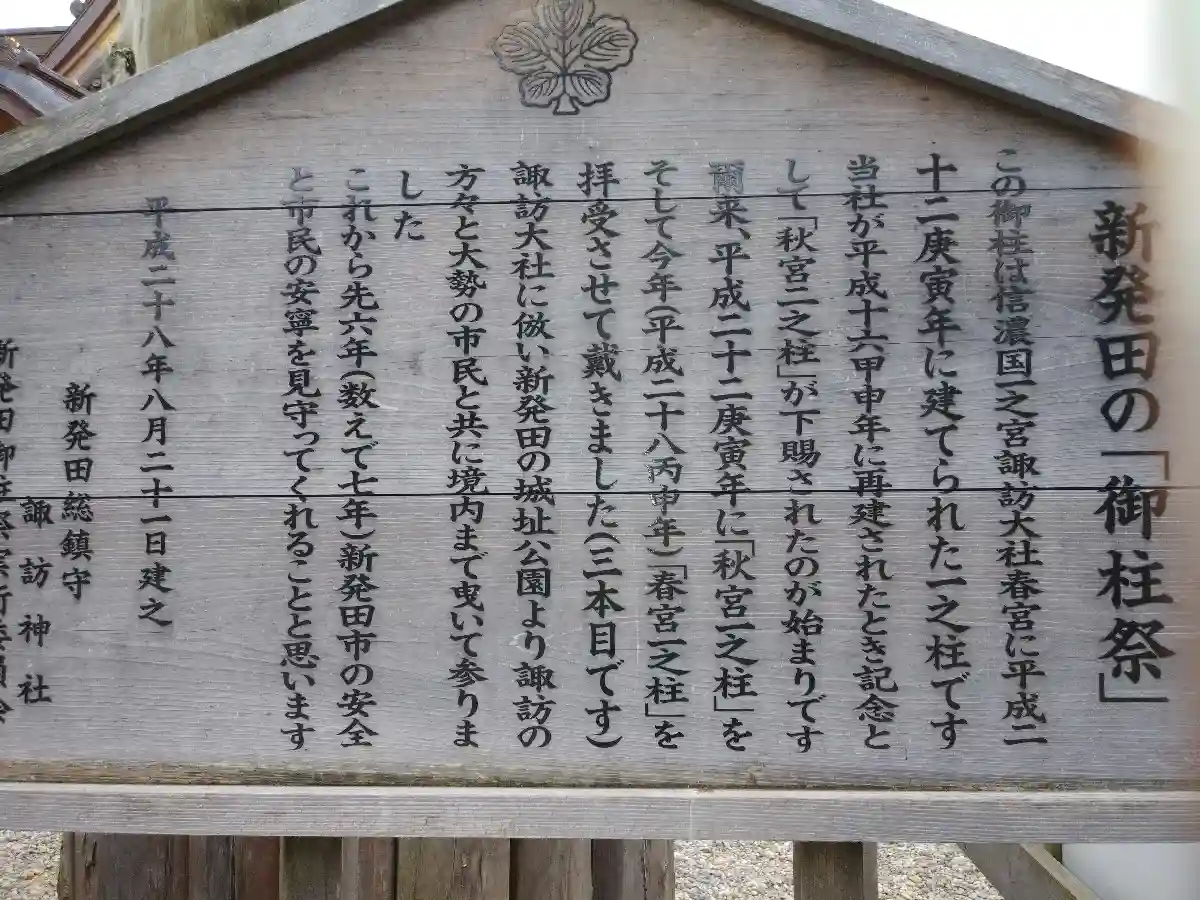 新発田の「御柱祭」
この御柱は信濃国一之宮諏訪大社春宮に平成二
十二庚寅年に建てられた一之柱です
当社が平成十六甲申年に再建されたとき記念と
して「秋宮二之柱」が下賜されたのが始まりです
爾来、平成二十二庚寅年に「秋宮一之柱」を
そして今年(平成二十八丙申年)「春宮一之柱」を
拝受させて戴きました(三本目です)
諏訪大社に倣い新発田の城址公園より諏訪の
方々と大勢の市民と共に境内まで曳いて参りま
した
これから先六年(数えで七年)新発田市の安全
と市民の安寧を見守ってくれることと思います
平成二十八年八月二十一日建之
新発田総鎮守
諏訪神社
新発田御柱祭実行委員会